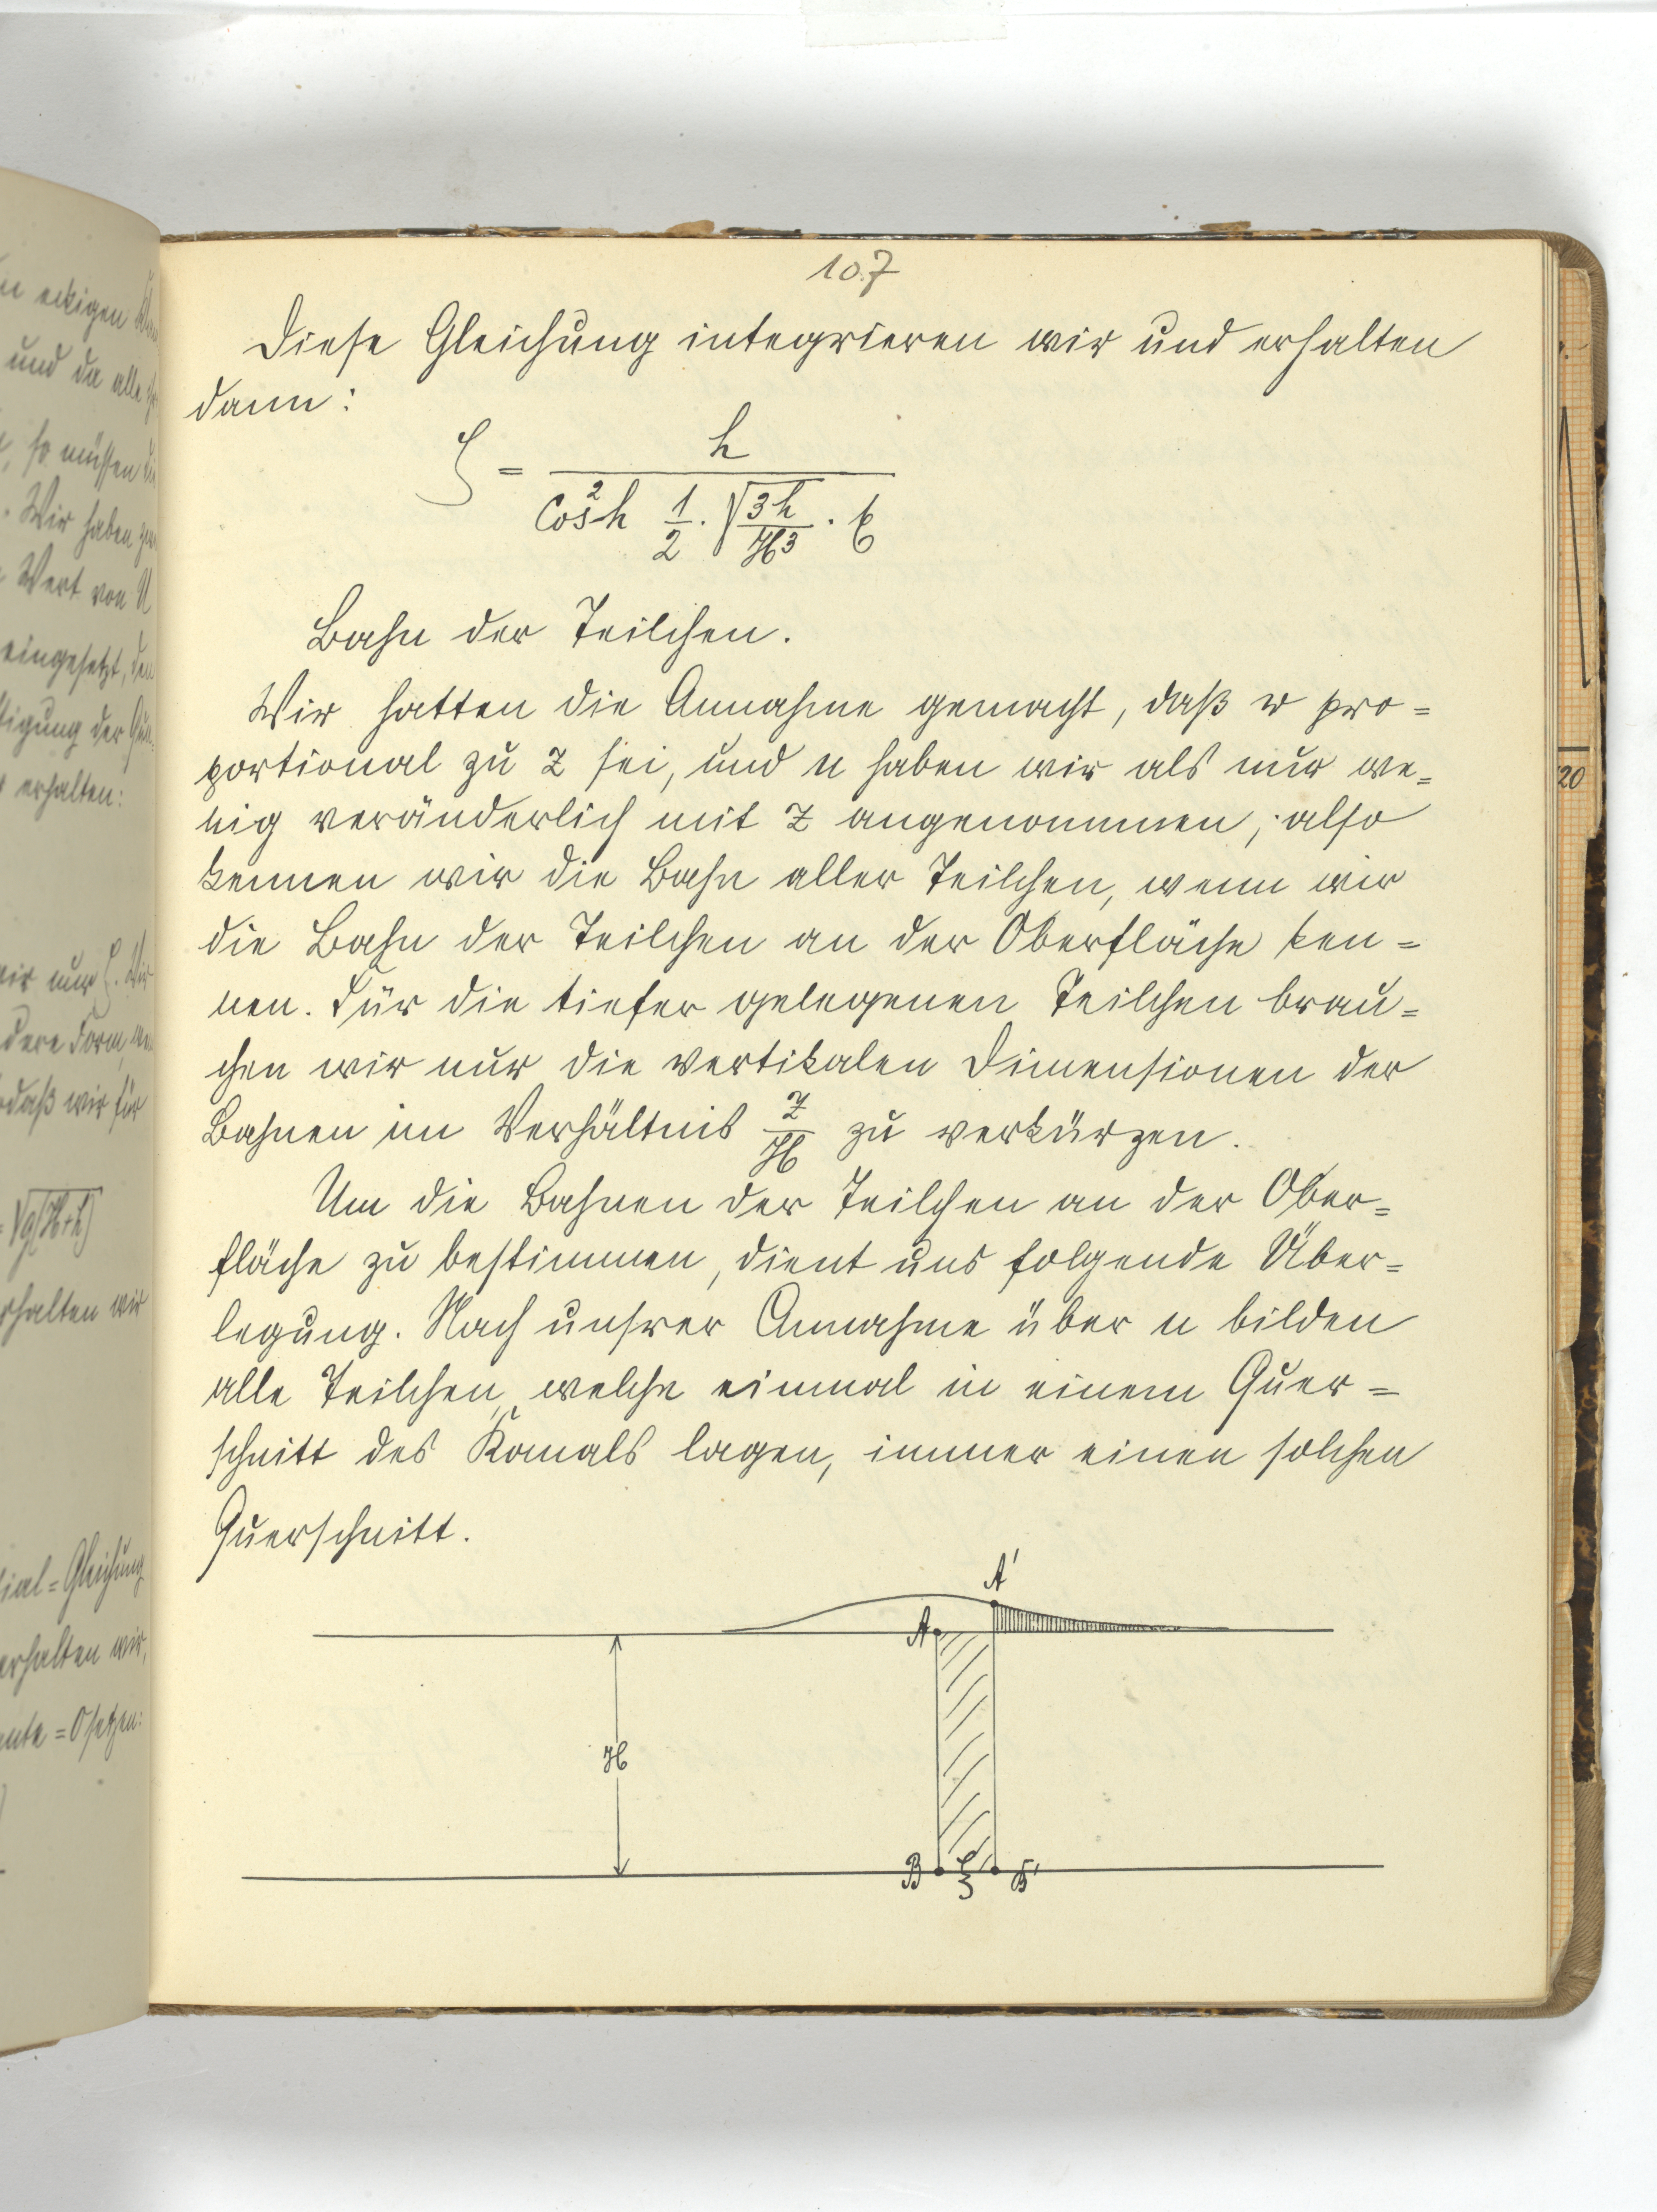 107
Diese Gleichung integrieren wir und erhalten
dann:
ζ = h / (cos²h 1/2 · √(3h/H³) · ξ)
Bahn der Teilchen.
Wir hatten die Annahme gemacht, daß w pro=
portional zu z sei, und u haben wir als nur we=
nig veränderlich mit z angenommen, also
kennen wir die Bahn aller Teilchen, wenn wir
die Bahn der Teilchen an der Oberfläche ken=
nen. Für die tiefer gelegenen Teilchen brau=
chen wir nur die vertikalen Dimensionen der
Bahnen im Verhältnis z/H zu verkürzen.
Um die Bahnen der Teilchen an der Ober=
fläche zu bestimmen, dient uns folgende Über=
legung. Nach unsrer Annahme über u bilden
alle Teilchen, welche einmal in einem Quer=
schnitt des Kanals lagen, immer einen solchen
Querschnitt.
A'
A
H
B ξ B'
20
en eckigen
und da alle
so müssen die
Wir haben
Wert von U
eingesetzt, den
tigung der
erhalten:
wir nur ζ. Wir
dere Form
sodaß wir für
= √g(H+h)
erhalten wir
tial=Gleichung
erhalten wir,
= 0 setzen: